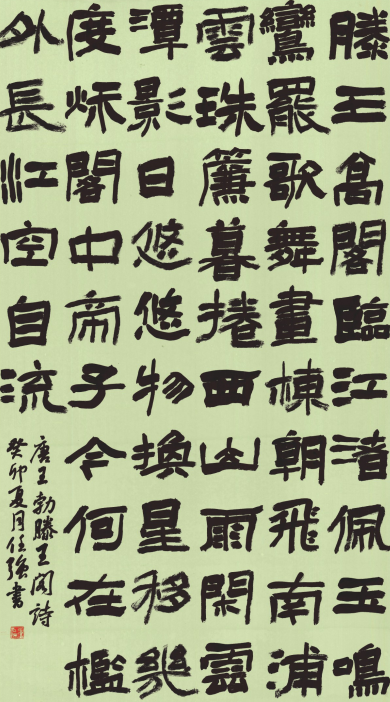 滕王髙閣臨江渚佩玉鳴
鸞罷歌舞畫棟朝飛南浦
雲珠簾暮捲西山雨閑雲
潭影日悠悠物換星移幾
度秌閣中帝子今何在檻
外長江空自流
唐王勃滕王阁詩
癸卯夏月任强書